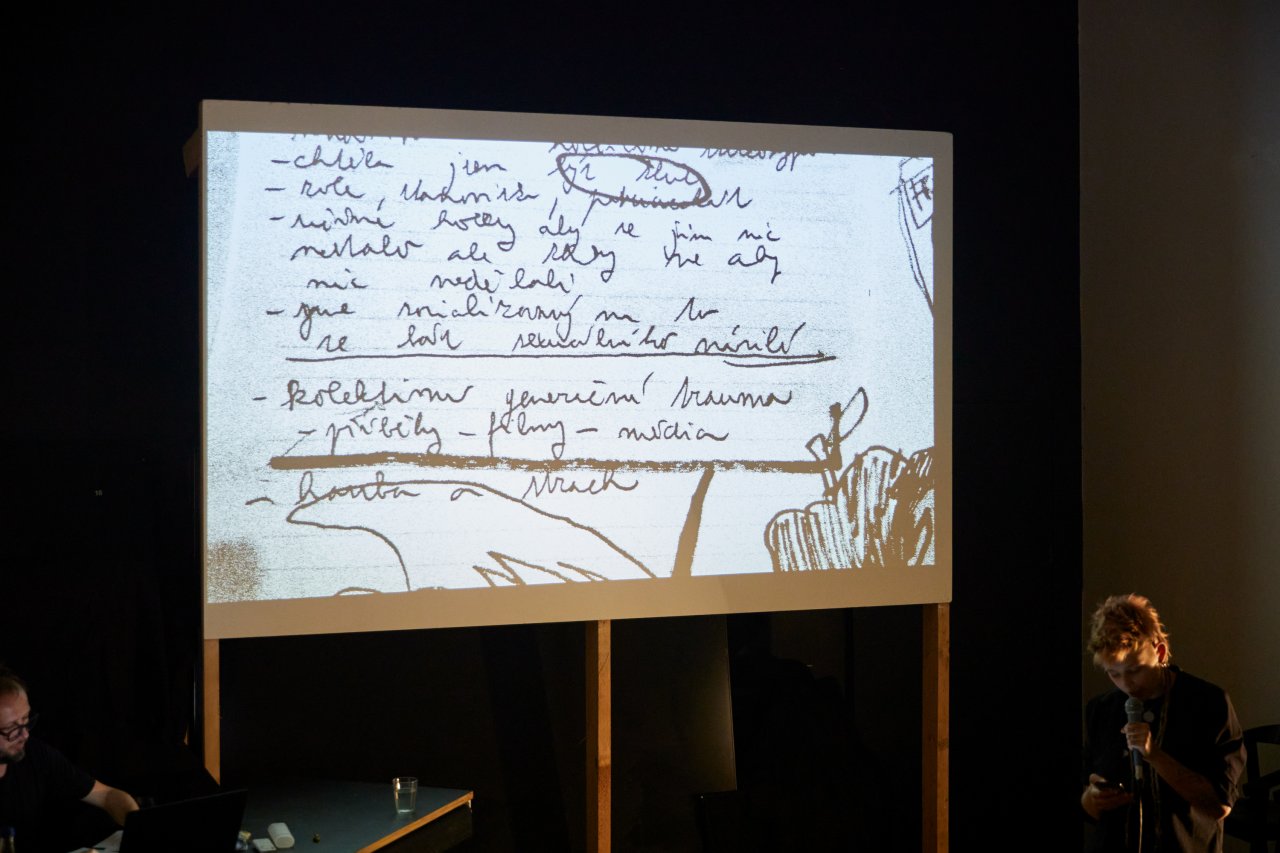 - chtěla jsem být
- role,
- učíme holky aby se jim nic
nestalo ale ne aby
nic nedělali
- jsme socializovaný na to
se bát sexuálního násilí
- kolektivní generační trauma
- příběhy - filmy - média
- hanba a strach